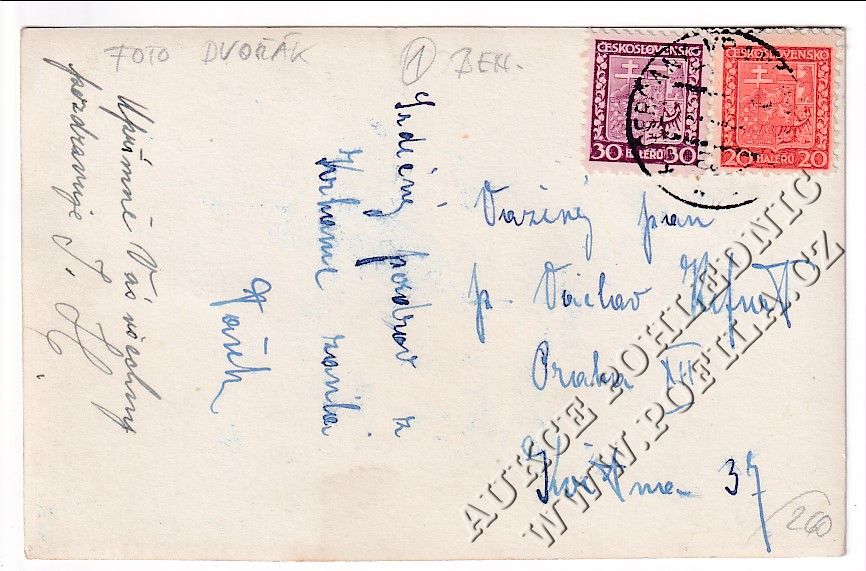 FOTO DVOŘÁK
1 BEH.
ČESKOSLOVENSKO
30 HALÉŘŮ 30
ČESKOSLOVENSKO
20 HALÉŘŮ 20
Upřímně Vás všechny
pozdravuje J. H.
Srdečný pozdrav z
Vašek
Vážený pan
p. Václav
Praha XII
37
260
AUKCE POHLEDNIC
WWW.POFILA.CZ